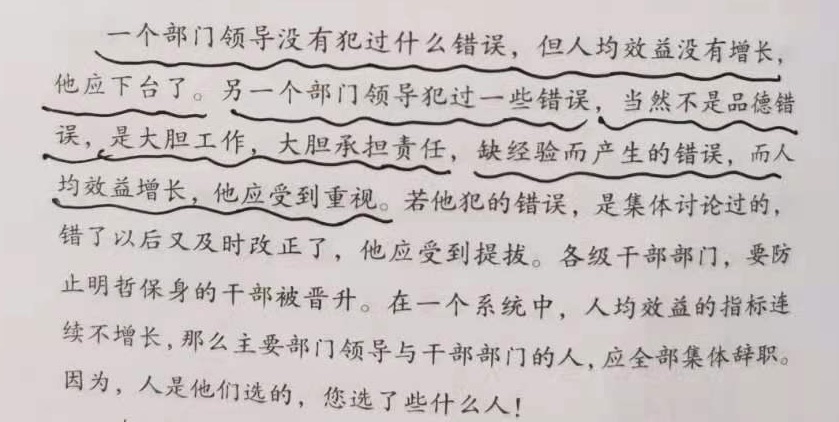 一个部门领导没有犯过什么错误，但人均效益没有增长，
他应下台了。另一个部门领导犯过一些错误，当然不是品德错
误，是大胆工作，大胆承担责任，缺经验而产生的错误，而人
均效益增长，他应受到重视。若他犯的错误，是集体讨论过的，
错了以后又及时改正了，他应受到提拔。各级干部部门，要防
止明哲保身的干部被晋升。在一个系统中，人均效益的指标连
续不增长，那么主要部门领导与干部部门的人，应全部集体辞职。
因为，人是他们选的，您选了些什么人！